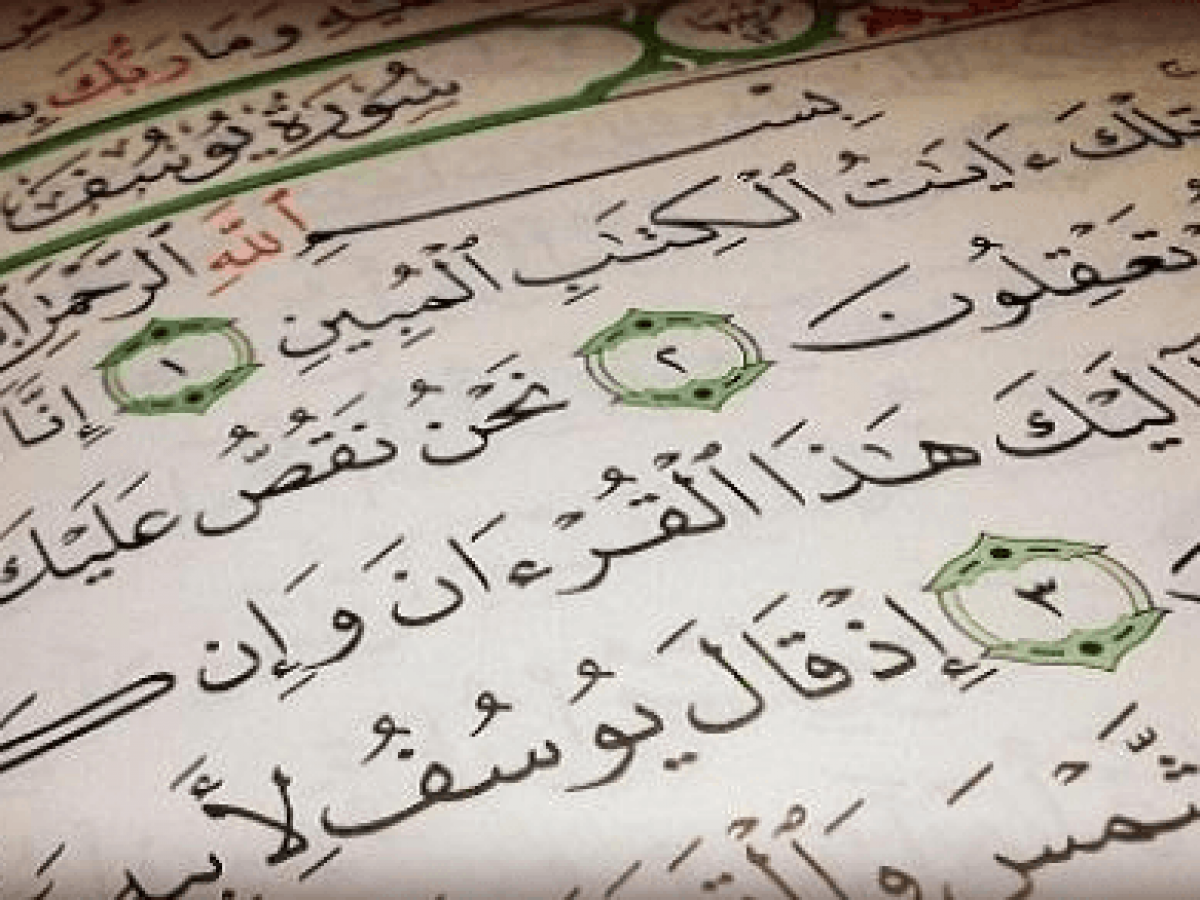 وَمَا رَبُّكَ
سُورَةُ يُوسُفَ
بِسْمِ ٱللَّهِ ٱلرَّحْمَٰنِ
تِلْكَ ءَايَٰتُ ٱلْكِتَٰبِ ٱلْمُبِينِ ١ إِنَّآ
تَعْقِلُونَ ٢ نَحْنُ نَقُصُّ عَلَيْكَ
إِلَيْكَ هَٰذَا ٱلْقُرْءَانَ وَإِن
٣ إِذْ قَالَ يُوسُفُ لِأَبِيهِ